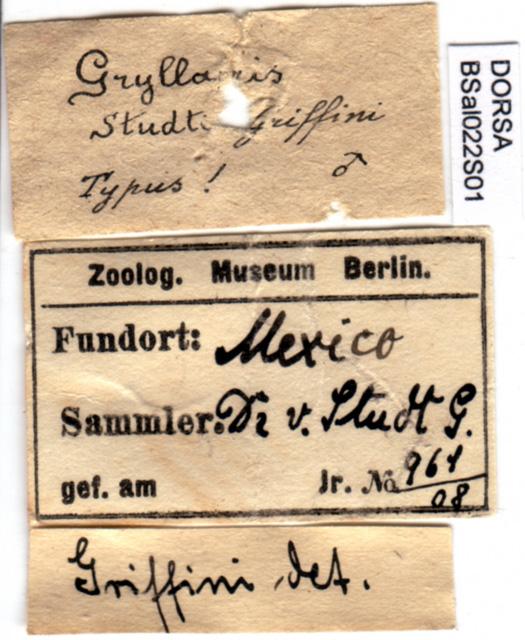 Gryllacris
Studti Griffini
Typus! ♂
DORSA
BSal022S01
Zoolog. Museum Berlin.
Fundort: Mexico
Sammler: Dr v. Studt G.
gef. am Jr. No 961/08
Griffini det.